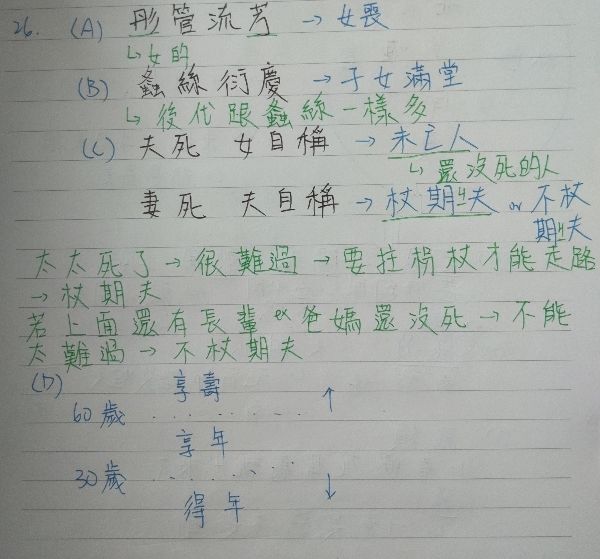 26. (A) 彤管流芳 → 女喪
↳女的
(B) 螽絲衍慶 → 子女滿堂
↳ 後代跟螽絲一樣多
(C) 夫死 女自稱 → 未亡人
↳ 還沒死的人
妻死 夫自稱 → 杖期夫 or 不杖
期夫
太太死了→很難過→要拄柺杖才能走路
→杖期夫
若上面還有長輩 ex 爸媽還沒死→不能
太難過→不杖期夫
(D) 享壽
60歲 ......... ↑
享年
30歲 ......... ↓
得年